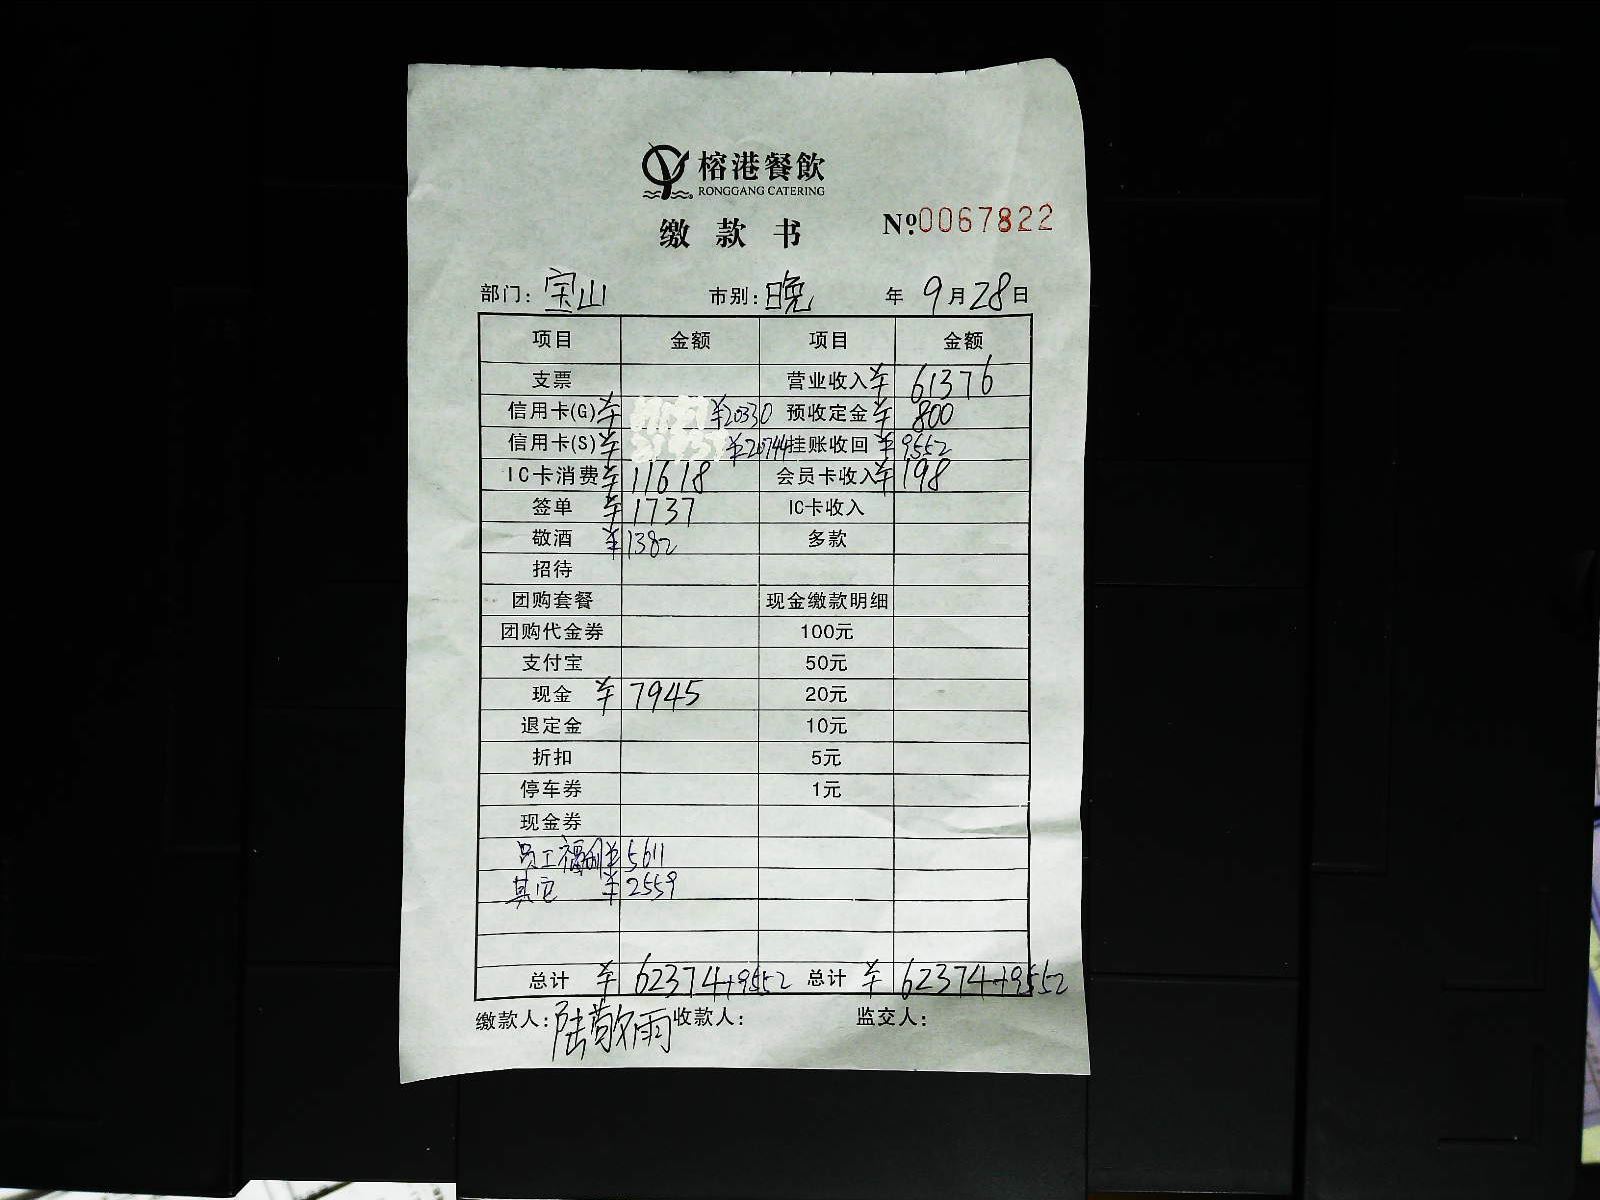 榕港餐飲
RONGGANG CATERING
缴款书 Nº:0067822
部门: 宝山 市别: 晚 年 9月28日
项目 金额 项目 金额
支票 营业收入 ¥ 61376
信用卡(G) ¥ ¥20330 预收定金 ¥ 800
信用卡(S) ¥ ¥20744 挂账收回 ¥9552
IC卡消费 ¥ 11618 会员卡收入 ¥198
签单 ¥ 1737 IC卡收入
敬酒 ¥1382 多款
招待
团购套餐 现金缴款明细
团购代金券 100元
支付宝 50元
现金 ¥ 7945 20元
退定金 10元
折扣 5元
停车券 1元
现金券
员工福利 ¥5611
其它 ¥2559
总计 ¥ 62374+9552 总计 ¥ 62374+9552
缴款人: 陆敬雨 收款人: 监交人: